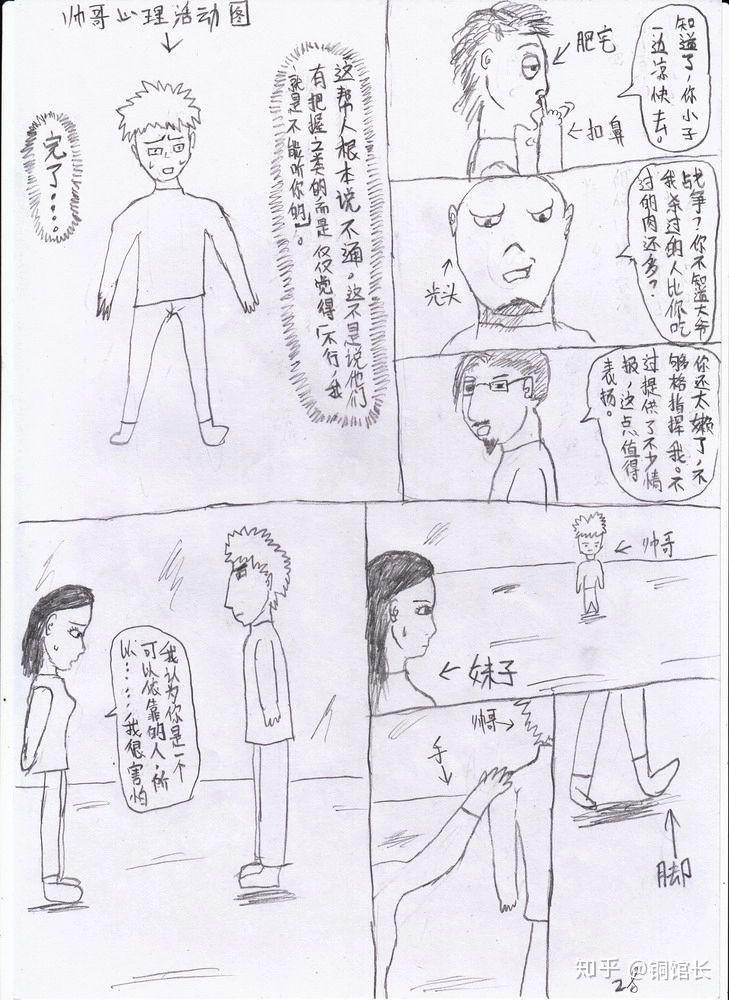 知道了,你小子
一边凉快去。
肥宅
扣鼻
战争?你不知道大爷
我杀过的人比你吃
过的肉还多?
光头
你还太嫩了,不
够格指挥我。不
过提供了不少情
报,这点值得
表扬。
帅哥心理活动图
这帮人根本说不通。这不是说他们
有把握之类的而是仅仅觉得「不行,我
就是不能听你的」。
完了……
帅哥
妹子
脚
帅哥
手
我认为你是一个
可以依靠的人,所
以……我很害怕
28
知乎 @铜馆长